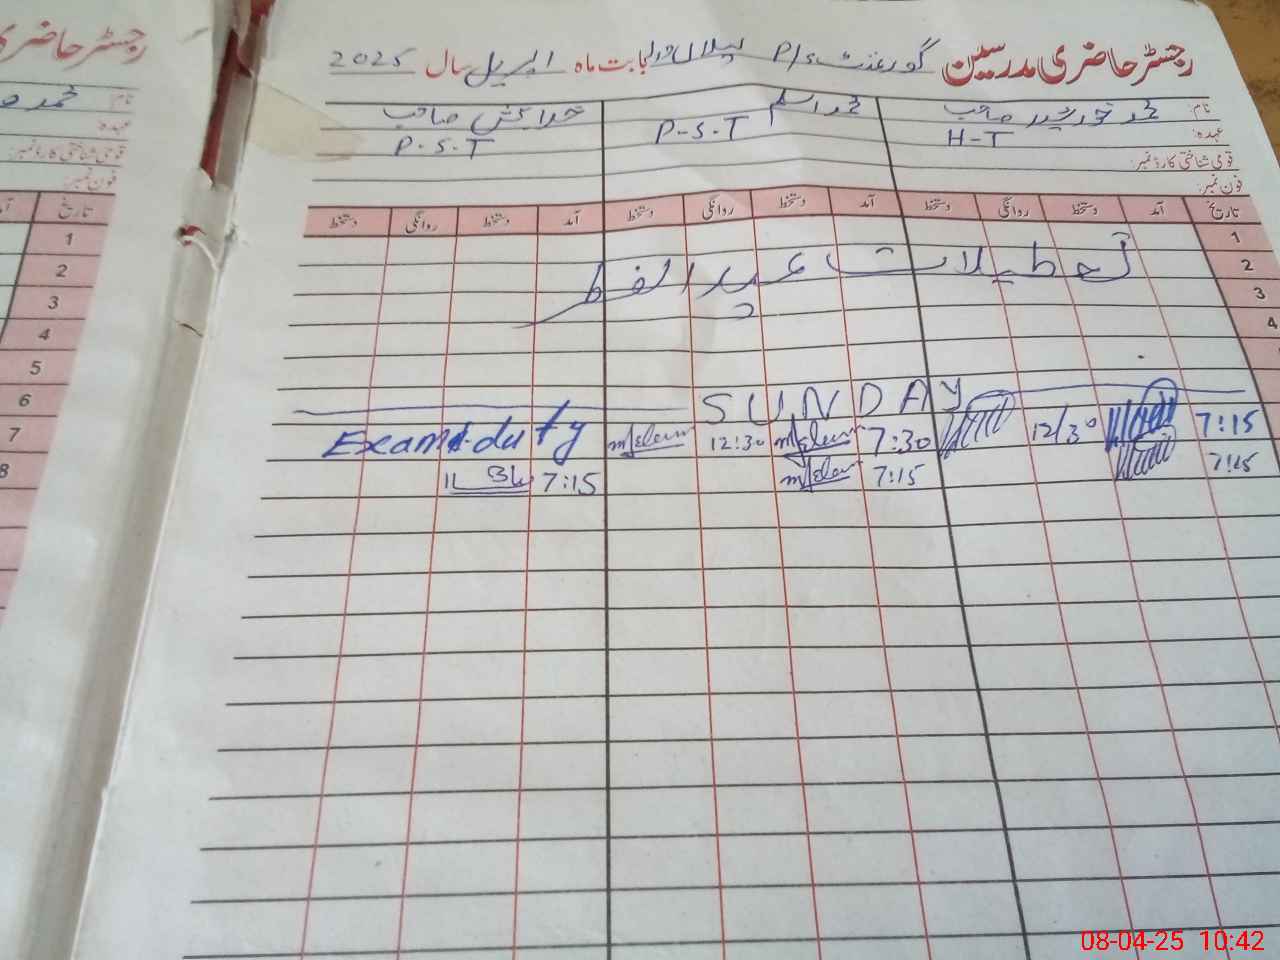 رجسٹر حاضری مدرسین گورنمنٹ P/S بابت ماہ اپریل سال 2025
نام: محمد خورشید صاحب محمد اسلم صاحب
عہدہ: H-T P-S-T P-S-T
قومی شناختی کارڈ نمبر:
فون نمبر:
تاریخ آمد دستخط روانگی دستخط آمد دستخط روانگی دستخط آمد دستخط روانگی دستخط
1
2 تعطیلات عید الفطر
3
4
SUNDAY
7:15 12/30 7:30 12:30 Exam duty
7:15 7:15 7:15
رجسٹر حاضری
نام: محمد
عہدہ:
قومی شناختی کارڈ نمبر:
فون نمبر:
تاریخ
1
2
3
4
5
6
7
8
08-04-25 10:42